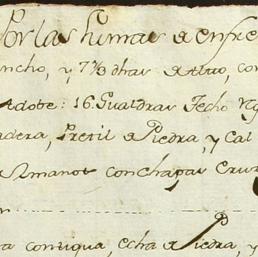 Por las humas de enfre
ancho, y 7⅓ dhas de Alto, con
Adobe: 16 Gualdras Techo
adera, Pretil de Piedra, y Cal
manos con chapas Cruz
a contigua, echa de Piedra, y